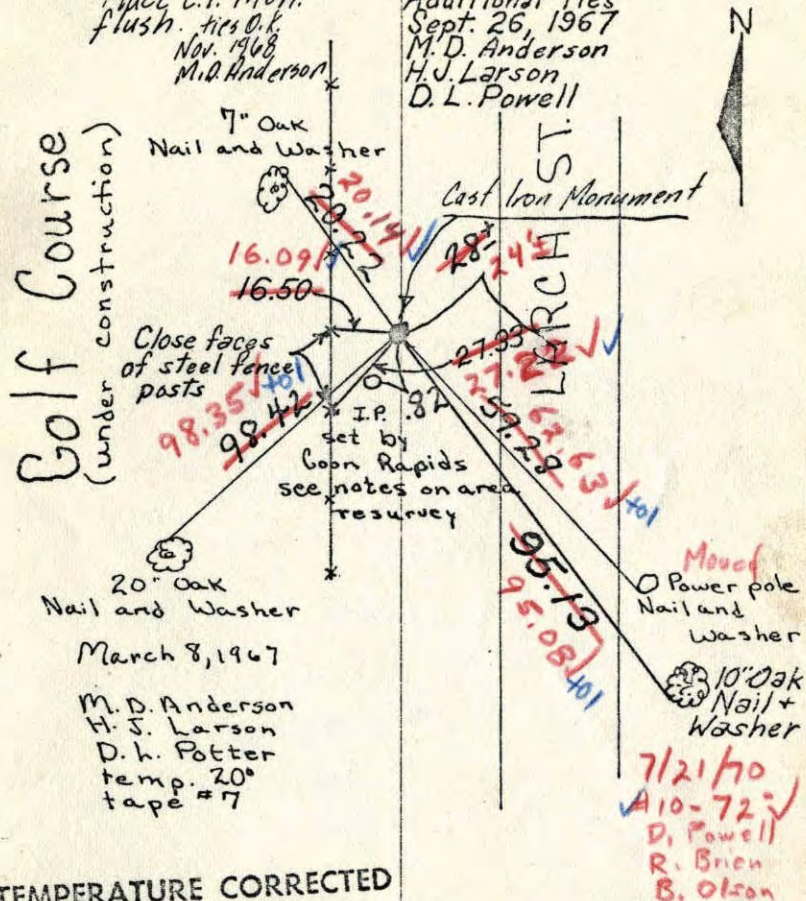 flush. ties O.K.
Nov. 1968
M.D. Anderson
Additional Ties
Sept. 26, 1967
M.D. Anderson
H.J. Larson
D.L. Powell
N
7" Oak
Nail and Washer
Golf Course
(under construction)
LARCH ST.
Cast Iron Monument
20.22
20.14
28±
24±
16.09
16.50
Close faces
of steel fence
posts
27.93
27.22
98.35 +01
98.42
I.P. .82
set by
Coon Rapids
see notes on area
resurvey
59.29
62.63 +01
95.13
95.08 +01
20" Oak
Nail and Washer
Moved
Power pole
Nail and
Washer
10" Oak
Nail +
Washer
March 8, 1967
M.D. Anderson
H.J. Larson
D.L. Potter
temp. 20°
tape #7
7/21/70
#10-72°
D. Powell
R. Brien
B. Olson
TEMPERATURE CORRECTED